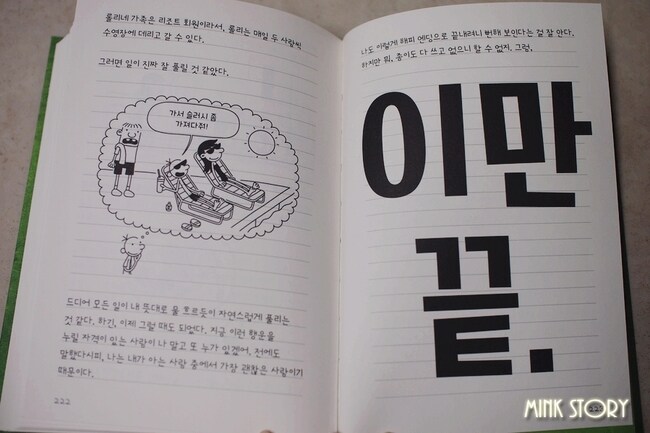 롤리네 가족은 리조트 회원이라서, 롤리는 매일 두 사람씩
수영장에 데리고 갈 수 있다.
그러면 일이 진짜 잘 풀릴 것 같았다.
가서 슬러시 좀
가져다줘!
드디어 모든 일이 내 뜻대로 물 흐르듯이 자연스럽게 풀리는
것 같다. 하긴, 이제 그럴 때도 되었다. 지금 이런 행운을
누릴 자격이 있는 사람이 나 말고 또 누가 있겠어. 전에도
말했다시피, 나는 내가 아는 사람 중에서 가장 괜찮은 사람이기
때문이다.
222
나도 이렇게 해피 엔딩으로 끝내려니 뻔해 보인다는 걸 잘 안다.
하지만 뭐, 종이도 다 쓰고 없으니 할 수 없지. 그럼,
이만
끝.
MINK STORY